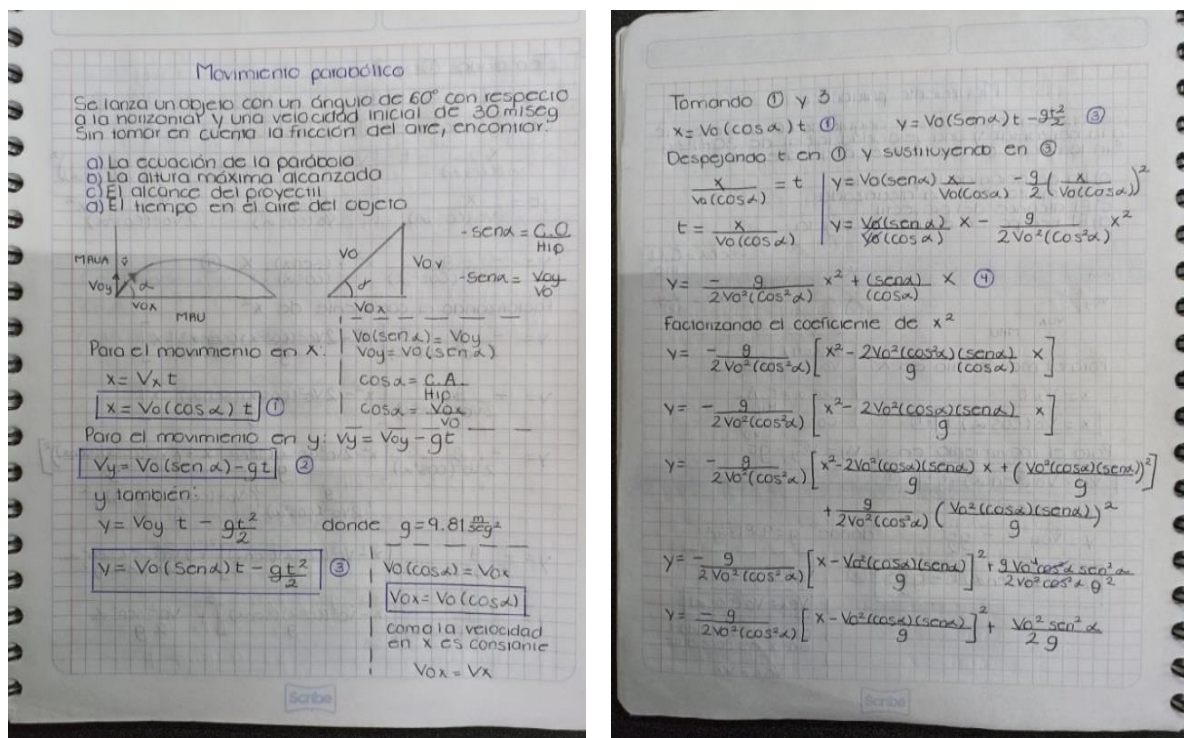 Movimiento parabólico
Se lanza un objeto con un ángulo de 60° con respecto
a la horizontal y una velocidad inicial de 30 m/seg
Sin tomar en cuenta la fricción del aire, encontrar:
a) La ecuación de la parábola
b) La altura máxima alcanzada
c) El alcance del proyectil
d) El tiempo en el aire del objeto
MRUA
Voy
α
Vox
MRU
Vo
Voy
α
Vox
-senα = C.O / Hip
-senα = Voy / Vo
Vo(senα) = Voy
Voy = Vo(senα)
cosα = C.A. / Hip
cosα = Vox / Vo
Para el movimiento en x:
x = Vx t
x = Vo(cosα) t ①
Para el movimiento en y: Vy = Voy - gt
Vy = Vo(senα) - gt ②
y también:
y = Voy t - gt²/2 donde g = 9.81 m/seg²
y = Vo(senα)t - gt²/2 ③
Vo(cosα) = Vox
Vox = Vo(cosα)
como la velocidad
en x es constante
Vox = Vx
Scribe
Tomando ① y 3
x = Vo(cosα)t ① y = Vo(senα)t - gt²/2 ③
Despejando t en ① y sustituyendo en ③
x / Vo(cosα) = t
t = x / Vo(cosα)
y = Vo(senα) x / Vo(cosα) - g/2 (x / Vo(cosα))²
y = Vo(senα) / Vo(cosα) x - g / 2Vo²(cos²α) x²
y = - g / 2Vo²(cos²α) x² + (senα) / (cosα) x ④
Factorizando el coeficiente de x²
y = - g / 2Vo²(cos²α) [x² - 2Vo²(cos²α)(senα) / g (cosα) x]
y = - g / 2Vo²(cos²α) [x² - 2Vo²(cosα)(senα) / g x]
y = - g / 2Vo²(cos²α) [x² - 2Vo²(cosα)(senα) / g x + (Vo²(cosα)(senα) / g)²]
+ g / 2Vo²(cos²α) (Vo²(cosα)(senα) / g)²
y = - g / 2Vo²(cos²α) [x - Vo²(cosα)(senα) / g]² + g Vo⁴cos²α sen²α / 2Vo²cos²α g²
y = - g / 2Vo²(cos²α) [x - Vo²(cosα)(senα) / g]² + Vo² sen²α / 2g
Scribe